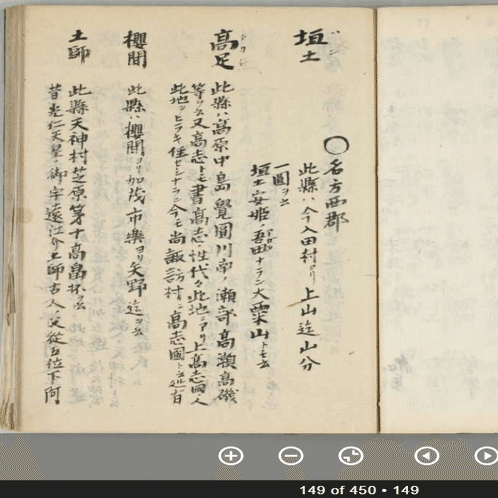 〇名方西郡
埴土
此縣ハ今入田村ヨリ上山迄山分
一圓ヲ云
埴土安姫ノ吾田ナラン大粟山トモ云
高足
此縣ハ高原中島覺圓川南ノ瀬部高瀬高磯
等ヲ云又高志トモ書高志ノ性代々此地ニアリ上高志國ノ人
此地ニヒラキ住セシナラン今モ尚諏訪村ニ高志國ト云
櫻間
此縣ハ櫻間ヨリ加茂市樂ヨリ矢野迄ヲ云
土師
此縣天神村芝原第十高畠ヲ云
昔光仁天皇ノ御宇遠江介土師古人ノ父從五位下阿
149 of 450 • 149